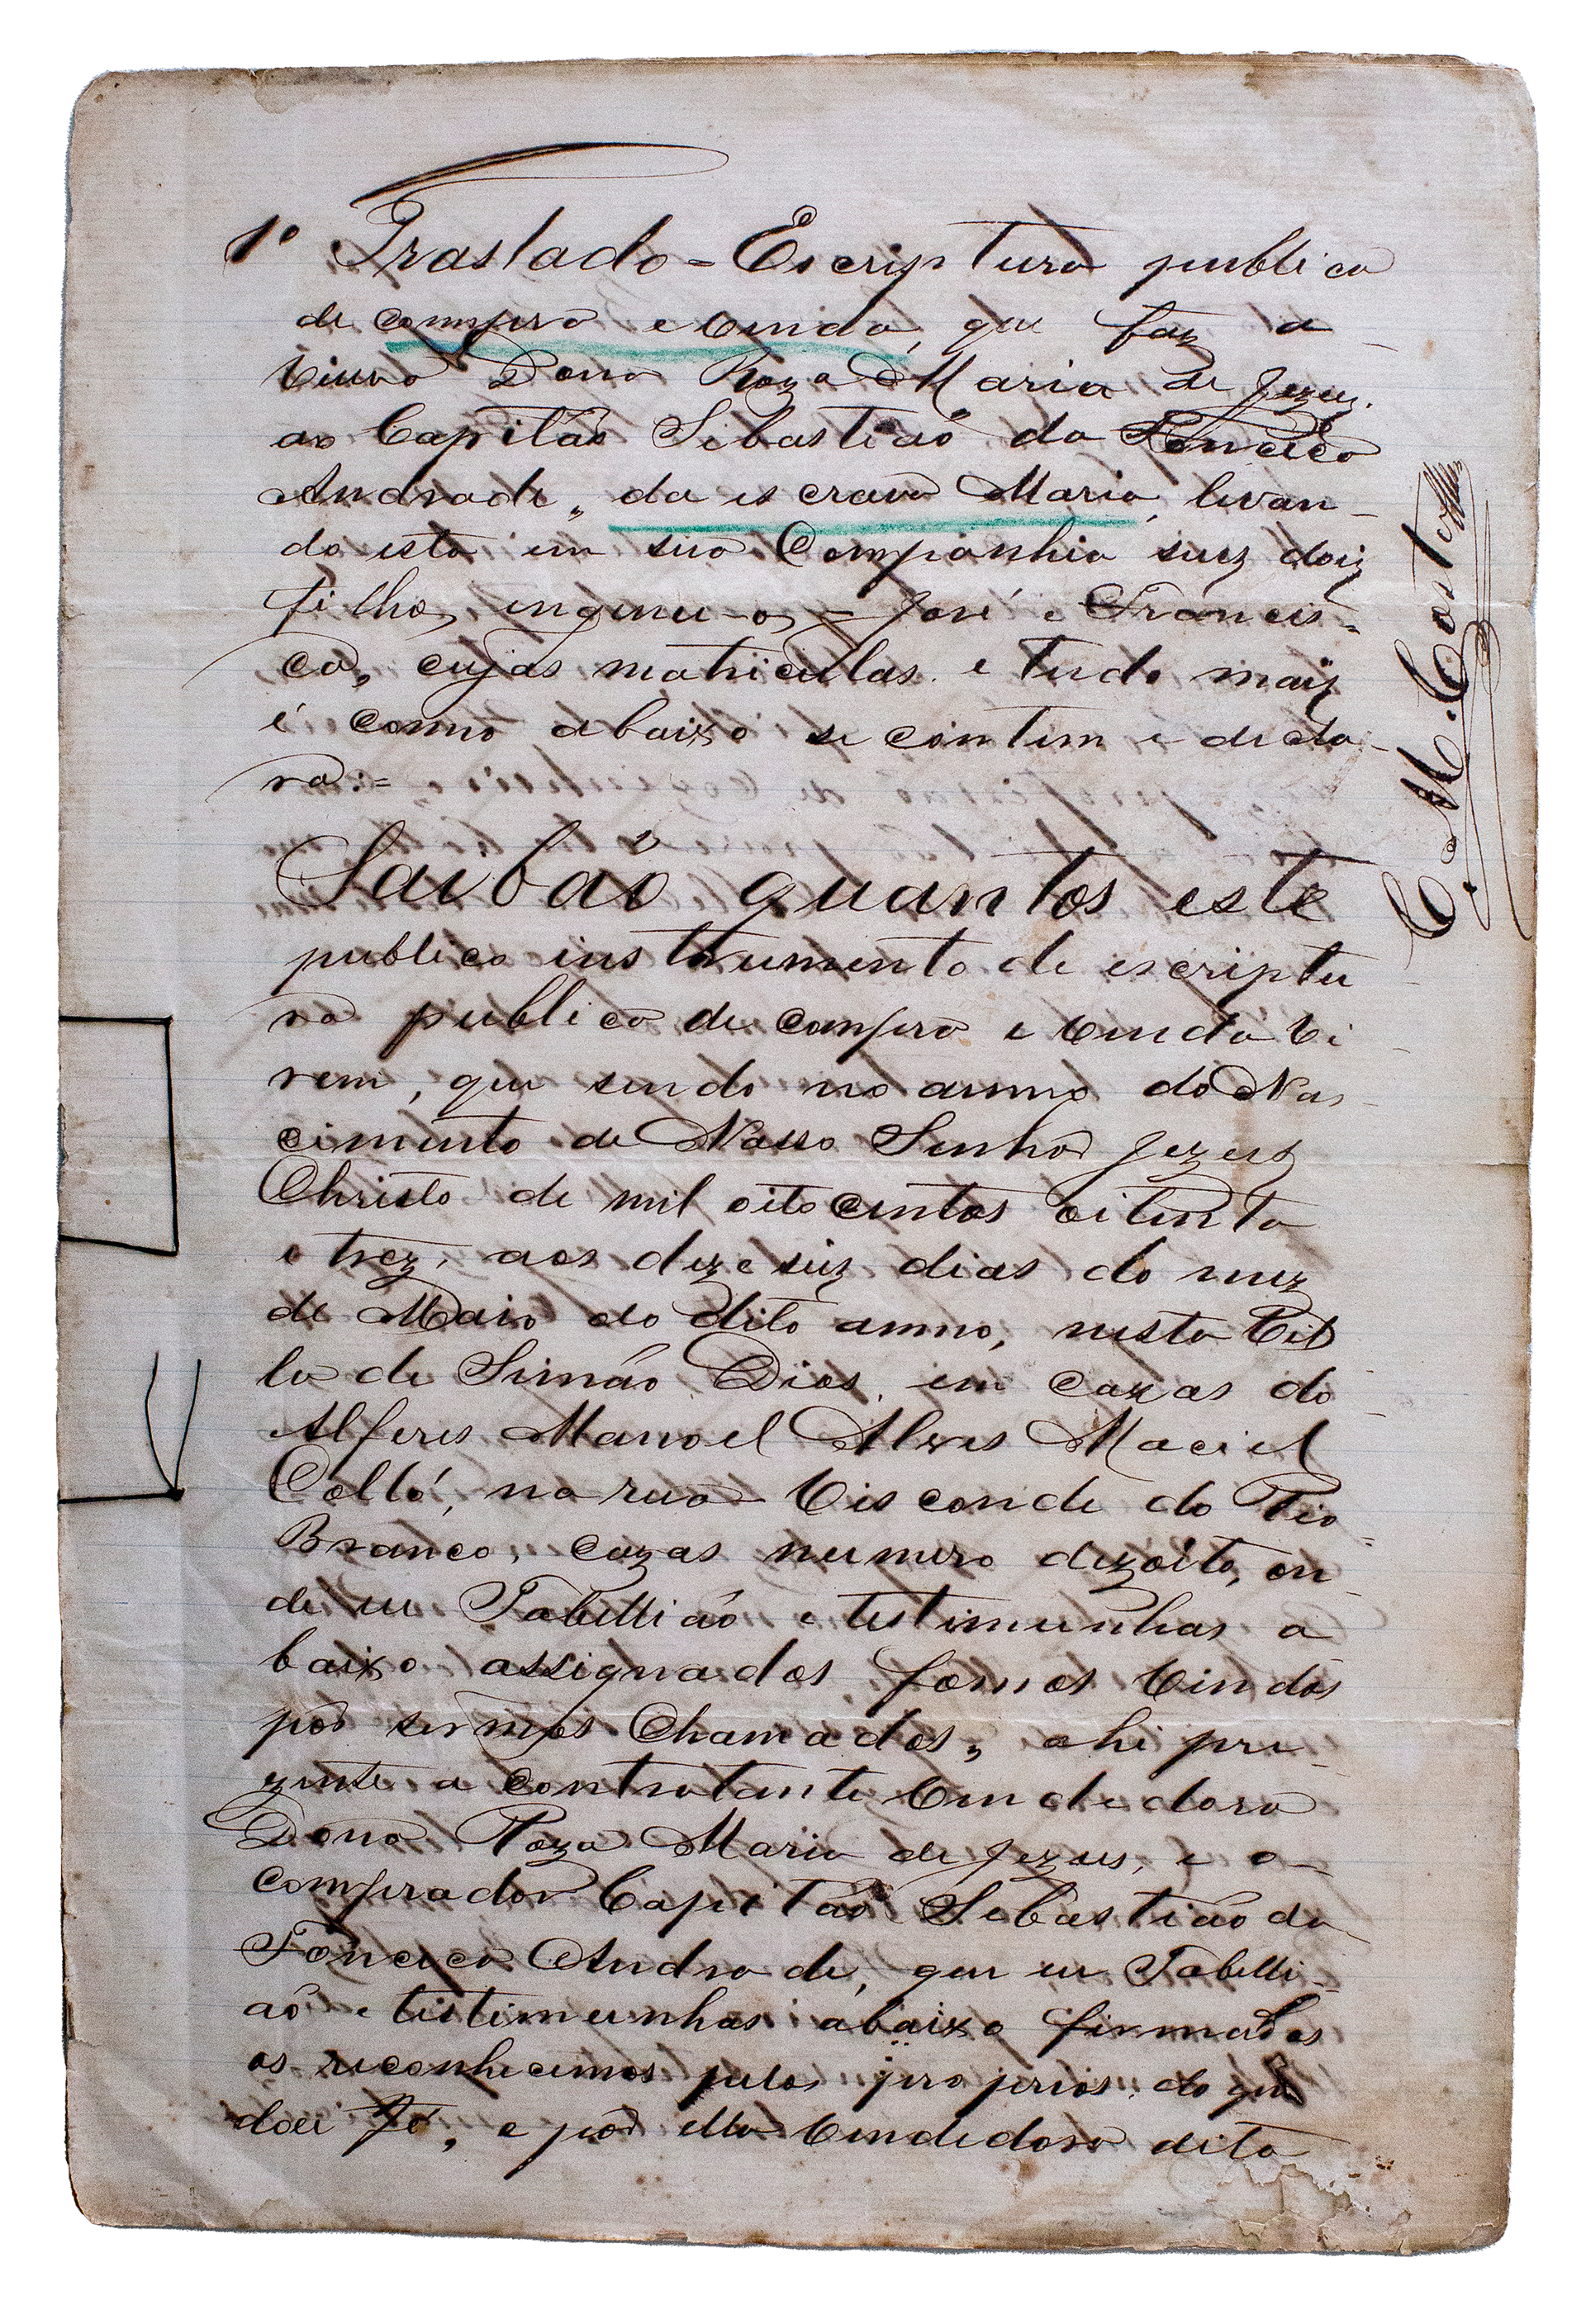 1º Traslado = Escriptura publica
de compra e venda, que faz a
viuva Dona Roza Maria de Jezuz.
ao Capitão Sebastião da Fonceca
Andrade, da escrava Maria, levan-
do esta em sua Companhia seuz doiz
filhos ingenu-os = José e Francis-
ca, cujas matriculas e tudo maiz
é como abaixo se contem e decla-
ra:=
Saibão quantos este
publico instrumento de escriptu
ra publica de compra e venda vi-
rem, que sendo no anno do Nas-
cimento de Nosso Senhor Jezuz
Christo de mil oito centos oitenta
e trez, aos dezeseiz dias do mez
de Maio do dito anno, nesta Vil
la de Simão Dias, em cazas do
Alferes Manoel Alves Maciel
Collá, na rua Visconde do Rio-
Branco, cazas numero dezoito, on-
de eu Tabellião e testimunhas a
baixo assignados, fomos vindos
por sermos Chamados, ahi pre-
zente a contratante vendedora
Dona Roza Maria de Jezus, e o-
comprador Capitão Sebastião da
Fonceca Andrade, que eu Tabelli-
aõ e testimunhas abaixo firmados
os reconhecemos pelos proprios do que
dou Fé, e por ella vendedora dito
C. M. Costa